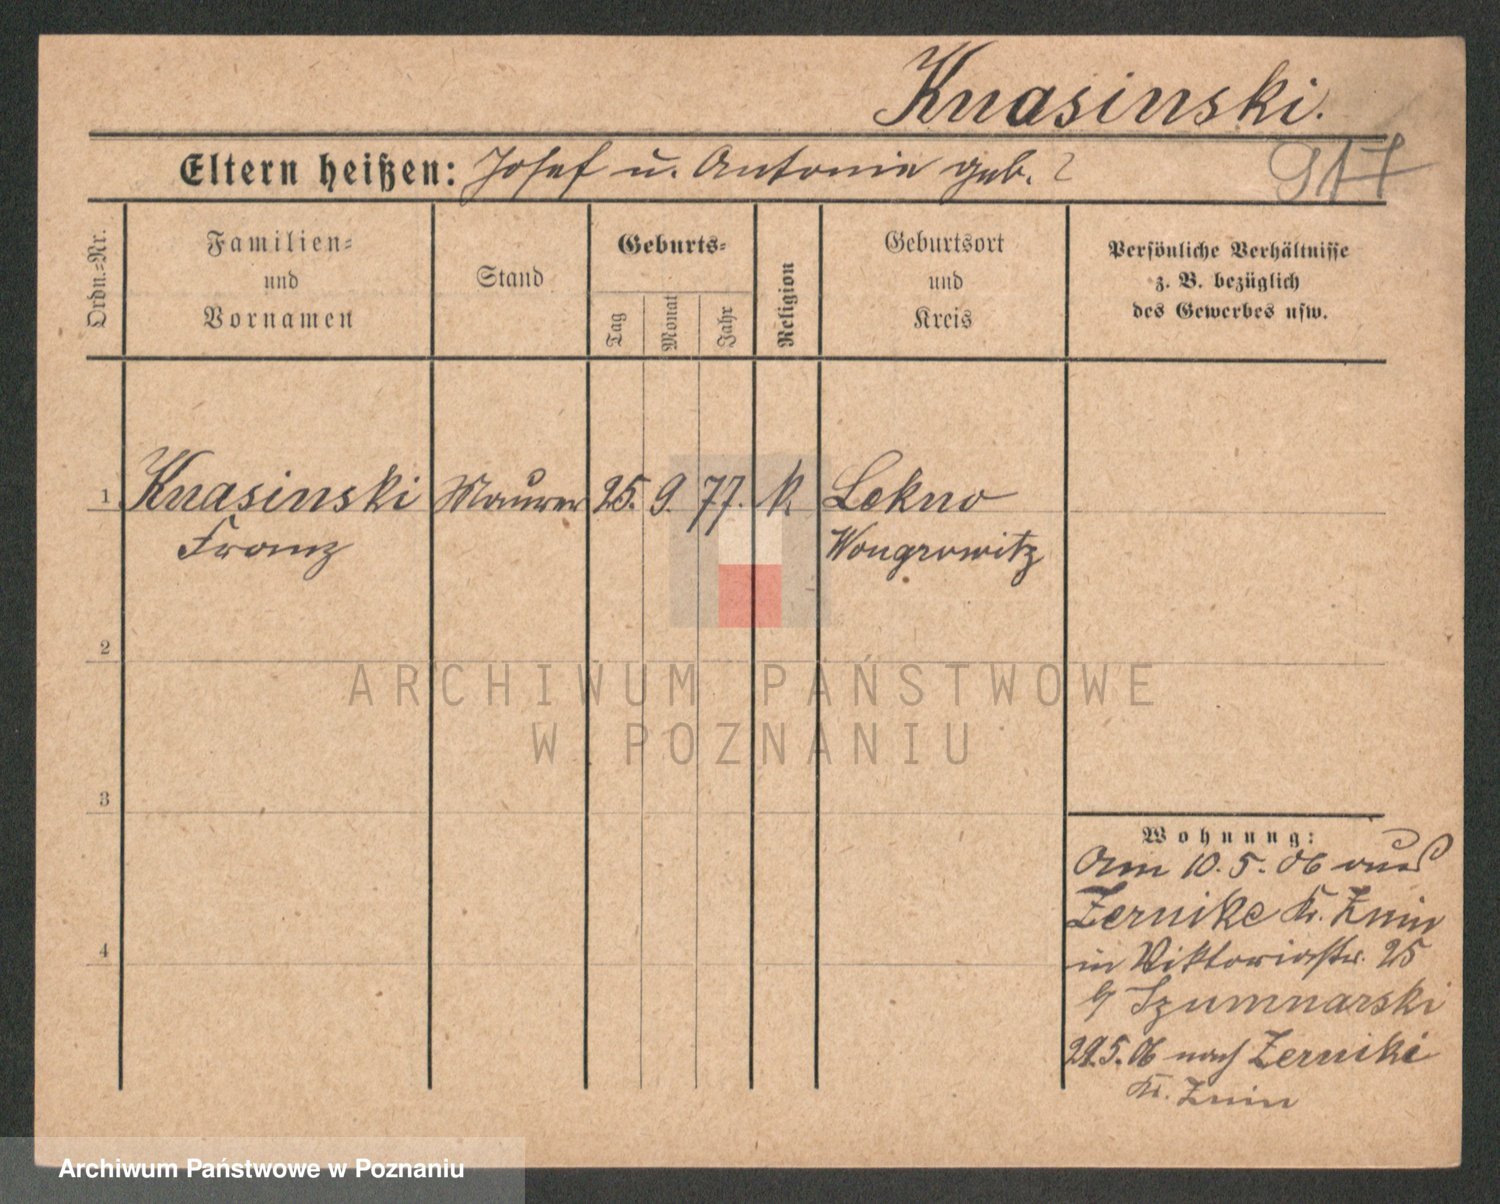 Knasinski.
Eltern heißen: Josef u. Antonie geb. ?
917
Ordn.=Nr.
Familien=
und
Vornamen
Stand
Geburts=
Tag
Monat
Jahr
Religion
Geburtsort
und
Kreis
Persönliche Verhältnisse
z. B. bezüglich
des Gewerbes usw.
1 Knasinski Maurer 25. 9. 77. k. Lekno
Franz Wongrowitz
2
ARCHIWUM PAŃSTWOWE
W POZNANIU
3
Wohnung:
Am 10. 5. 06 aus
Zernike Kr. Znin
in Viktoriastr. 25
b/ Szumnarski
4
29.5.06 nach Zerniki
Kr. Znin
Archiwum Państwowe w Poznaniu